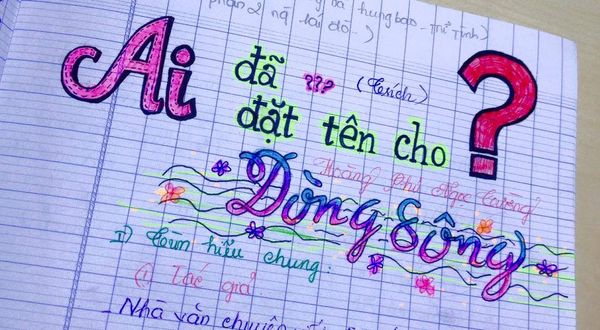 hưng bạo - Trữ Tình)
phần 2 nã lại đó...)
Ai đã ??? (trích)
đặt tên cho ?
Hoàng Phủ Ngọc Tường
Dòng Sông
I) Tìm hiểu chung:
(1) Tác giả
- Nhà văn chuyên